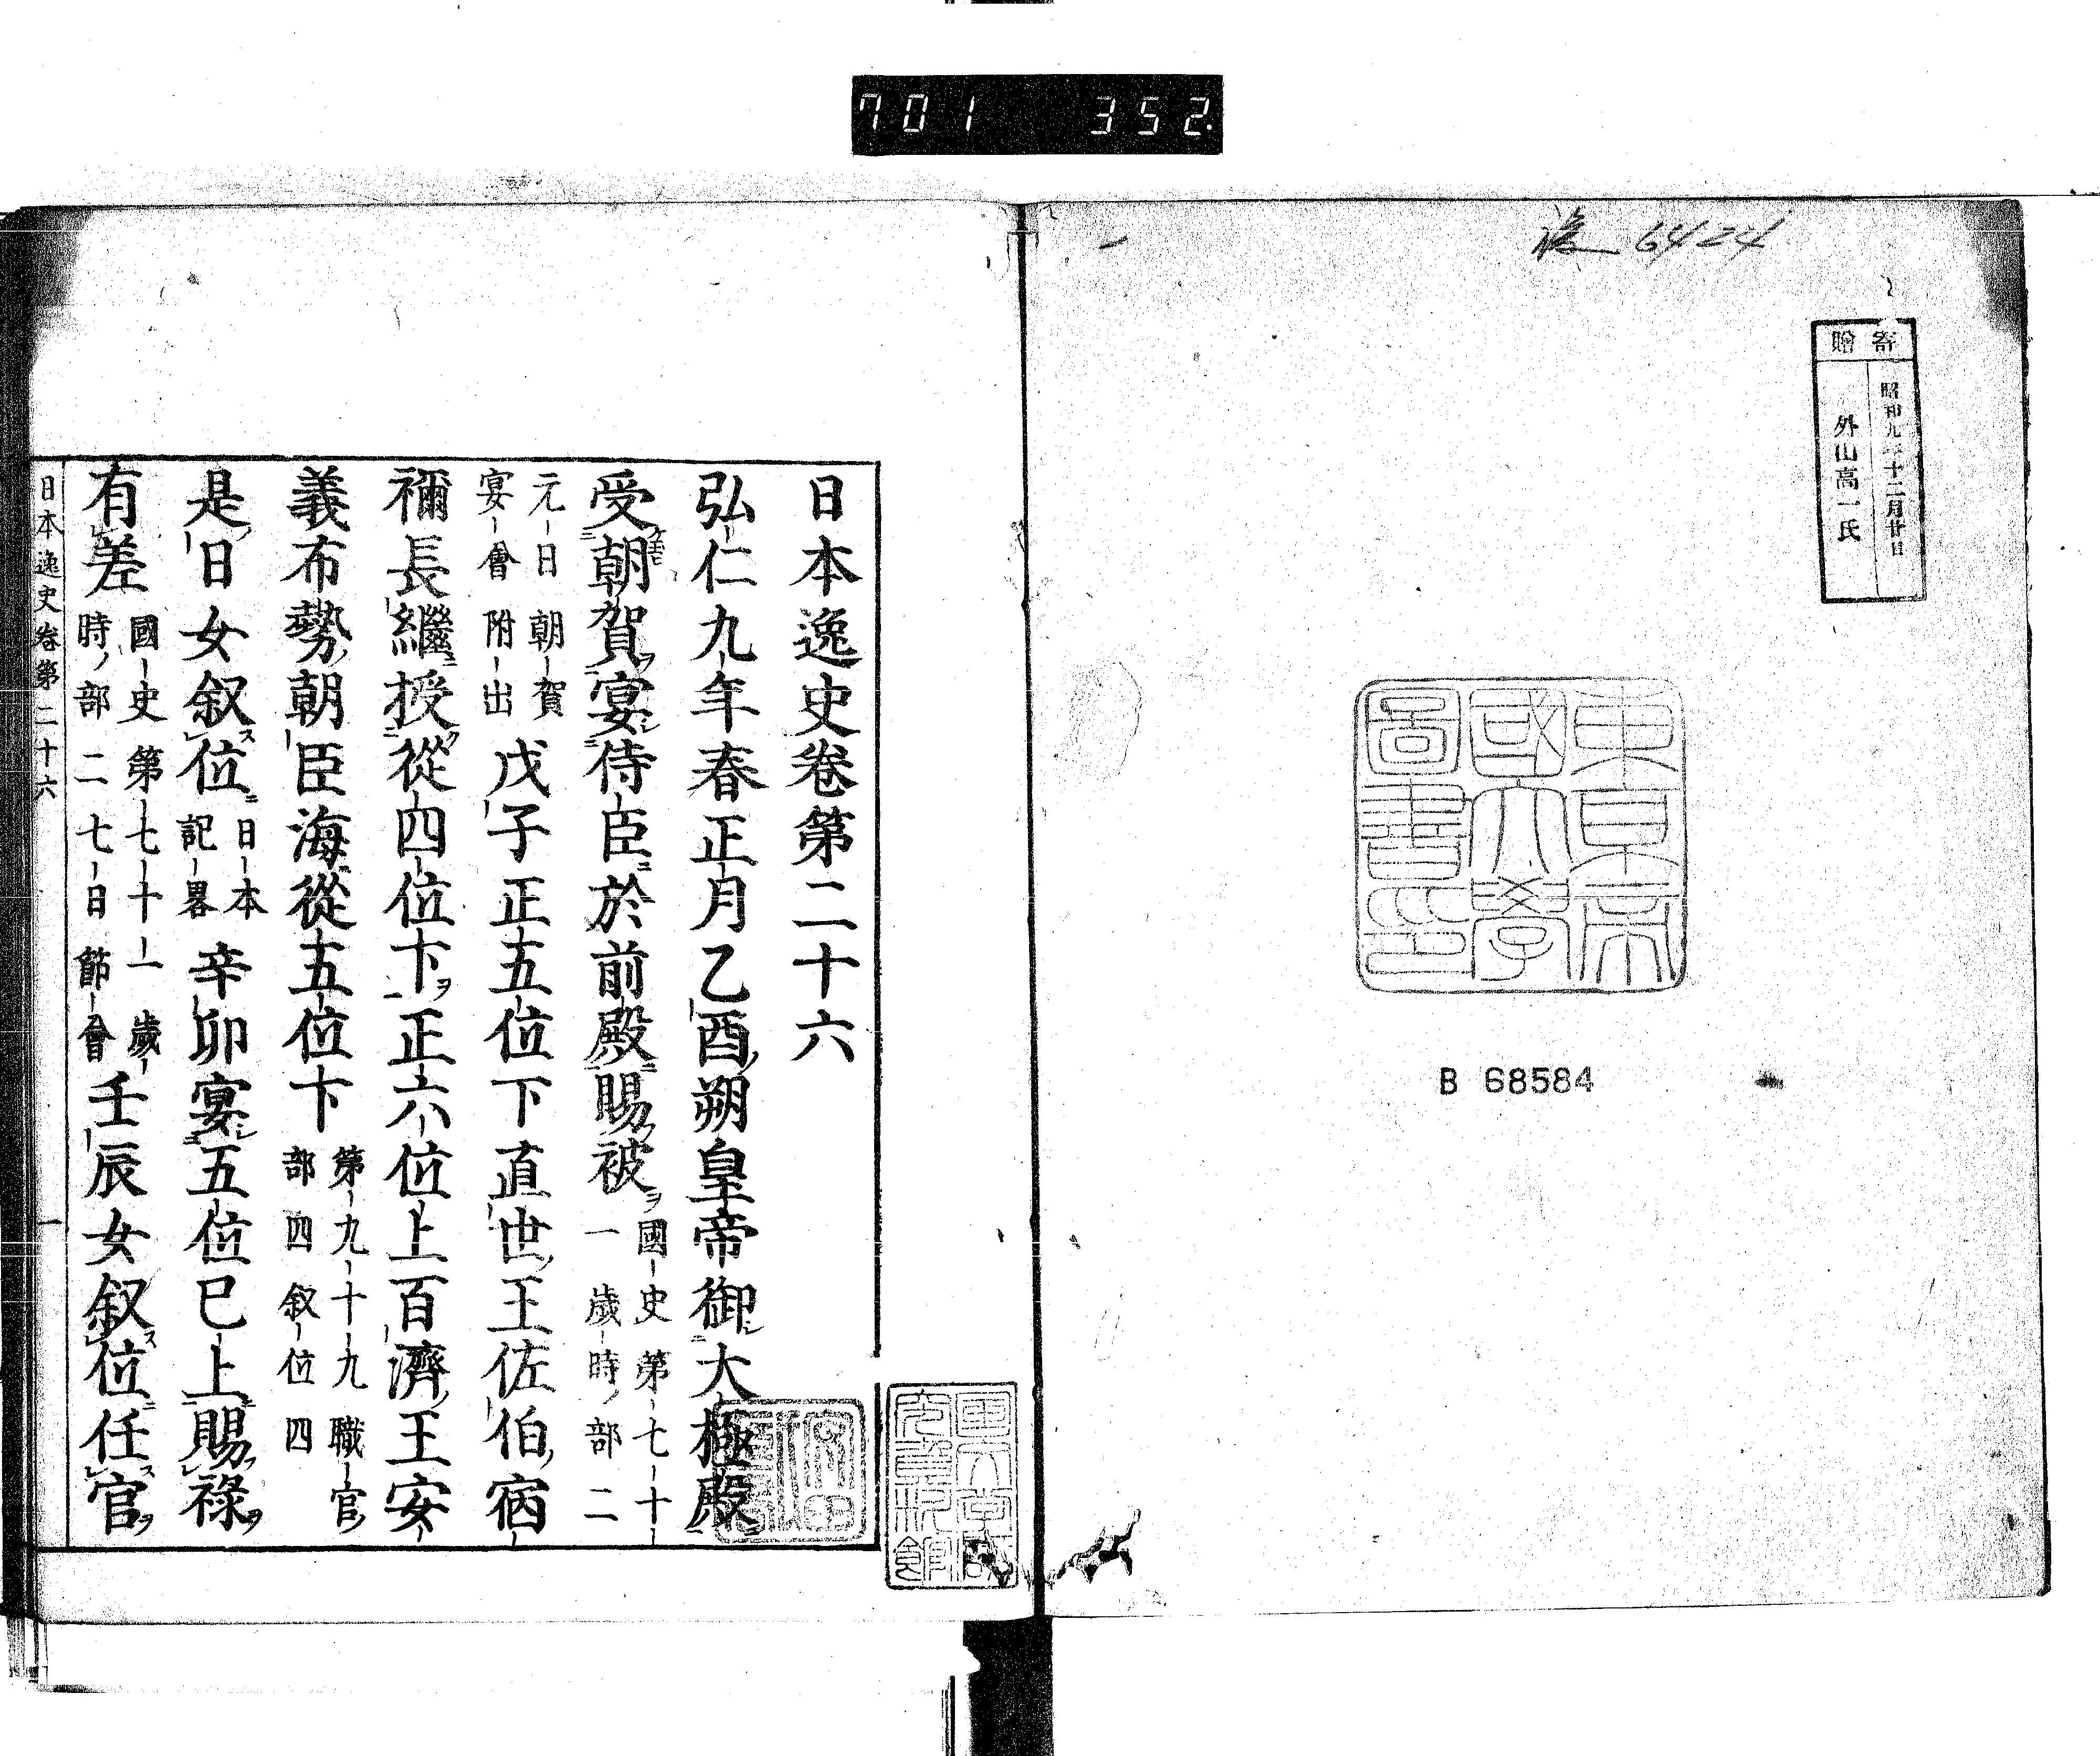 701 352.
6424
寄贈
昭和九年十二月廿日
外山高一氏
東京帝
國大學
圖書印
B 68584
日本逸史卷第二十六
弘仁九年春正月乙酉朔皇帝御大極殿
受朝賀宴侍臣於前殿賜被 國史第七十一歲時部二
元日朝賀宴會附出 戊子正五位下直世王佐伯宿
禰長繼授從四位下正六位上百濟王安
義布勢朝臣海從五位下 第九十九職官部四叙位四
是日女叙位 日本記畧 辛卯宴五位已上賜祿
有差 國史第七十一歲時部二七日節會 壬辰女叙位任官
日本逸史卷第二十六 一